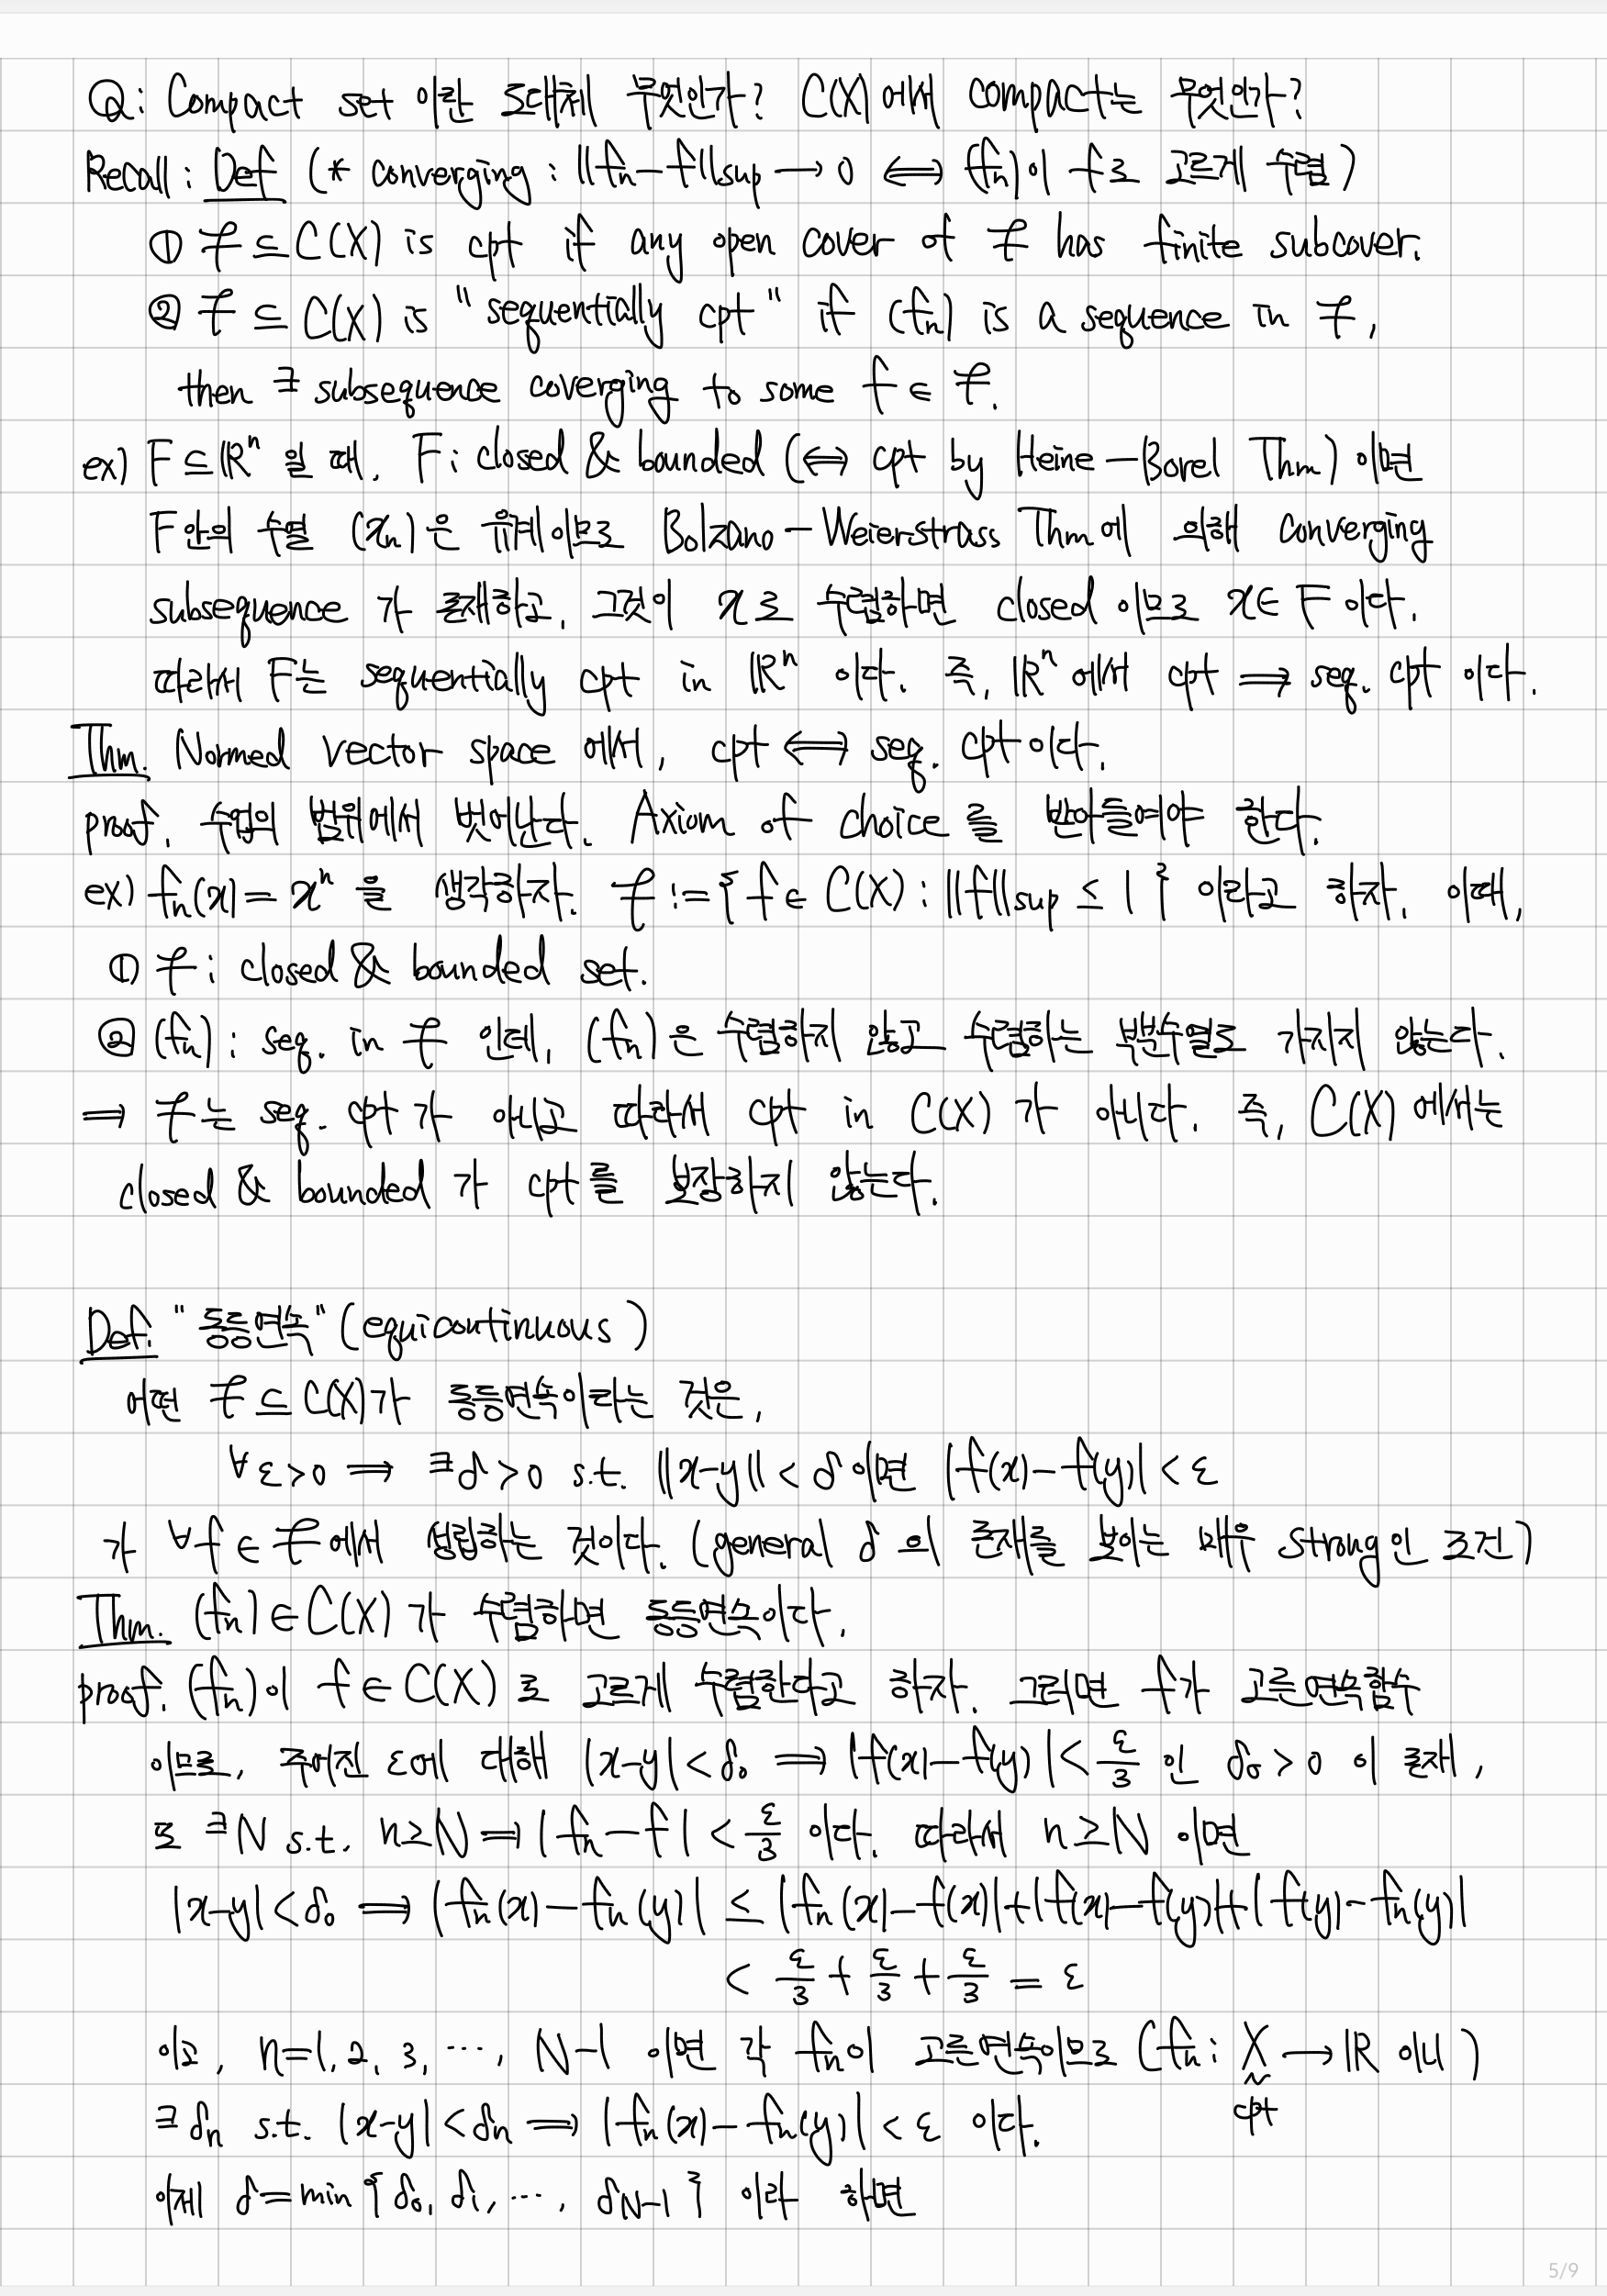 Q: Compact set 이란 도대체 무엇인가? C(X)에서 compact는 무엇인가?
Recall: Def (* converging : ||fn-f||sup → 0 ⟺ (fn)이 f로 고르게 수렴)
① 𝓕 ⊆ C(X) is cpt if any open cover of 𝓕 has finite subcover.
② 𝓕 ⊆ C(X) is "sequentially cpt" if (fn) is a sequence in 𝓕,
then ∃ subsequence coverging to some f ∈ 𝓕.
ex) F ⊆ ℝⁿ 일 때, F: closed & bounded (⟺ cpt by Heine-Borel Thm) 이면
F안의 수열 (xn)은 유계이므로 Bolzano-Weierstrass Thm에 의해 converging
subsequence 가 존재하고, 그것이 x로 수렴하면 closed 이므로 x ∈ F 이다.
따라서 F는 sequentially cpt in ℝⁿ 이다. 즉, ℝⁿ에서 cpt ⟹ seq. cpt 이다.
Thm. Normed vector space 에서, cpt ⟺ seq. cpt이다.
proof. 수업의 범위에서 벗어난다. Axiom of choice 를 받아들여야 한다.
ex) fn(x) = xⁿ 을 생각하자. 𝓕 := { f ∈ C(X) : ||f||sup ≤ 1 } 이라고 하자. 이때,
① 𝓕 : closed & bounded set.
② (fn) : seq. in 𝓕 인데, (fn)은 수렴하지 않고 수렴하는 부분수열도 가지지 않는다.
⟹ 𝓕는 seq. cpt가 아니고 따라서 cpt in C(X) 가 아니다. 즉, C(X)에서는
closed & bounded 가 cpt를 보장하지 않는다.
Def. "동등연속" (equicontinuous)
어떤 𝓕 ⊆ C(X)가 동등연속이라는 것은,
∀ε>0 ⟹ ∃δ>0 s.t. ||x-y|| < δ 이면 |f(x)-f(y)| < ε
가 ∀f ∈ 𝓕에서 성립하는 것이다. (general δ 의 존재를 보이는 매우 strong인 조건)
Thm. (fn) ∈ C(X) 가 수렴하면 동등연속이다.
proof. (fn)이 f ∈ C(X) 로 고르게 수렴한다고 하자. 그러면 f가 고른연속함수
이므로, 주어진 ε에 대해 |x-y| < δ₀ ⟹ |f(x)-f(y)| < ε/3 인 δ₀ > 0 이 존재,
또 ∃N s.t. n ≥ N ⟹ |fn-f| < ε/3 이다. 따라서 n ≥ N 이면
|x-y| < δ₀ ⟹ |fn(x)-fn(y)| ≤ |fn(x)-f(x)|+|f(x)-f(y)|+|f(y)-fn(y)|
< ε/3 + ε/3 + ε/3 = ε
이고, n=1, 2, 3, ⋯, N-1 이면 각 fn이 고른연속이므로 (fn : X → ℝ 이니)
cpt
∃δn s.t. |x-y| < δn ⟹ |fn(x)-fn(y)| < ε 이다.
이제 δ = min { δ₀, δ₁, ⋯, δN-1 } 이라 하면
5/9